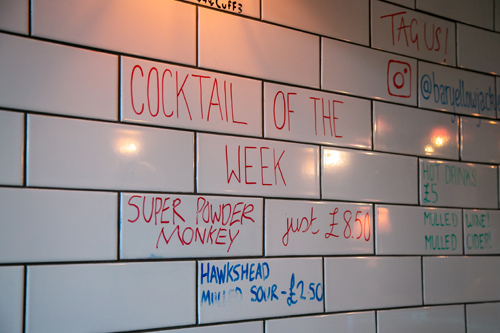 TAG US!
@baryellowjack
COCKTAIL OF THE
WEEK
SUPER POWDER
MONKEY
just £8.50
HOT DRINKS
£5
MULLED WINE!
MULLED CIDER!
HAWKSHEAD
MULLED SOUR - £2.50